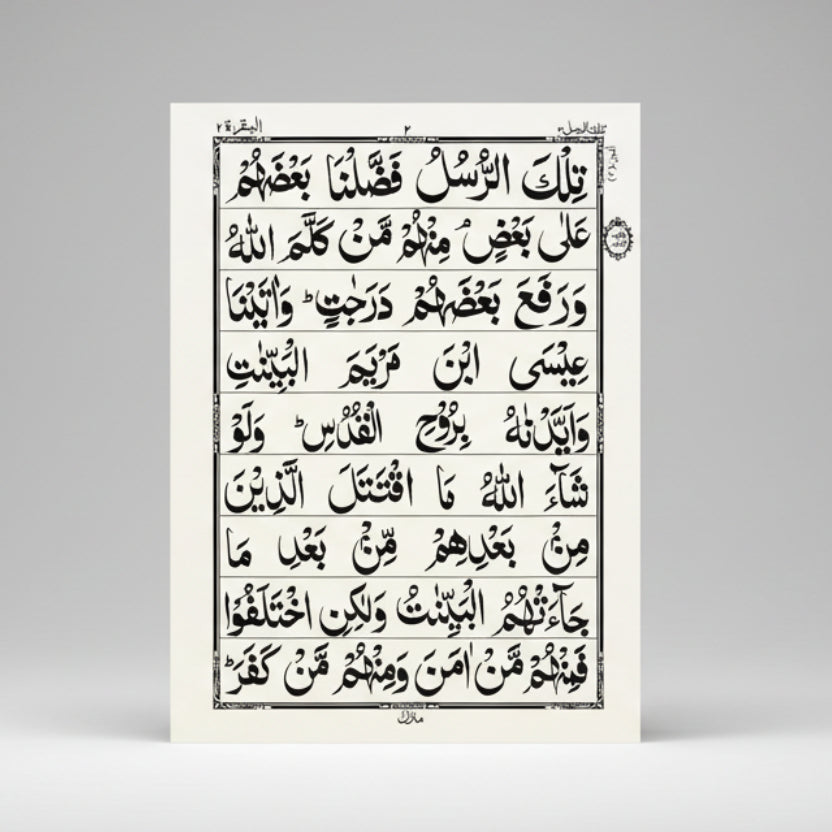 تلك الرسل ٢ البقرة ٢
تِلْكَ الرُّسُلُ فَضَّلْنَا بَعْضَهُمْ
عَلٰى بَعْضٍ ۘ مِنْهُمْ مَّنْ كَلَّمَ اللّٰهُ
وَرَفَعَ بَعْضَهُمْ دَرَجٰتٍ ؕ وَاٰتَيْنَا
عِيْسَى ابْنَ مَرْيَمَ الْبَيِّنٰتِ
وَاَيَّدْنٰهُ بِرُوْحِ الْقُدُسِ ؕ وَلَوْ
شَآءَ اللّٰهُ مَا اقْتَتَلَ الَّذِيْنَ
مِنْۢ بَعْدِهِمْ مِّنْۢ بَعْدِ مَا
جَآءَتْهُمُ الْبَيِّنٰتُ وَلٰكِنِ اخْتَلَفُوْا
فَمِنْهُمْ مَّنْ اٰمَنَ وَمِنْهُمْ مَّنْ كَفَرَ ؕ